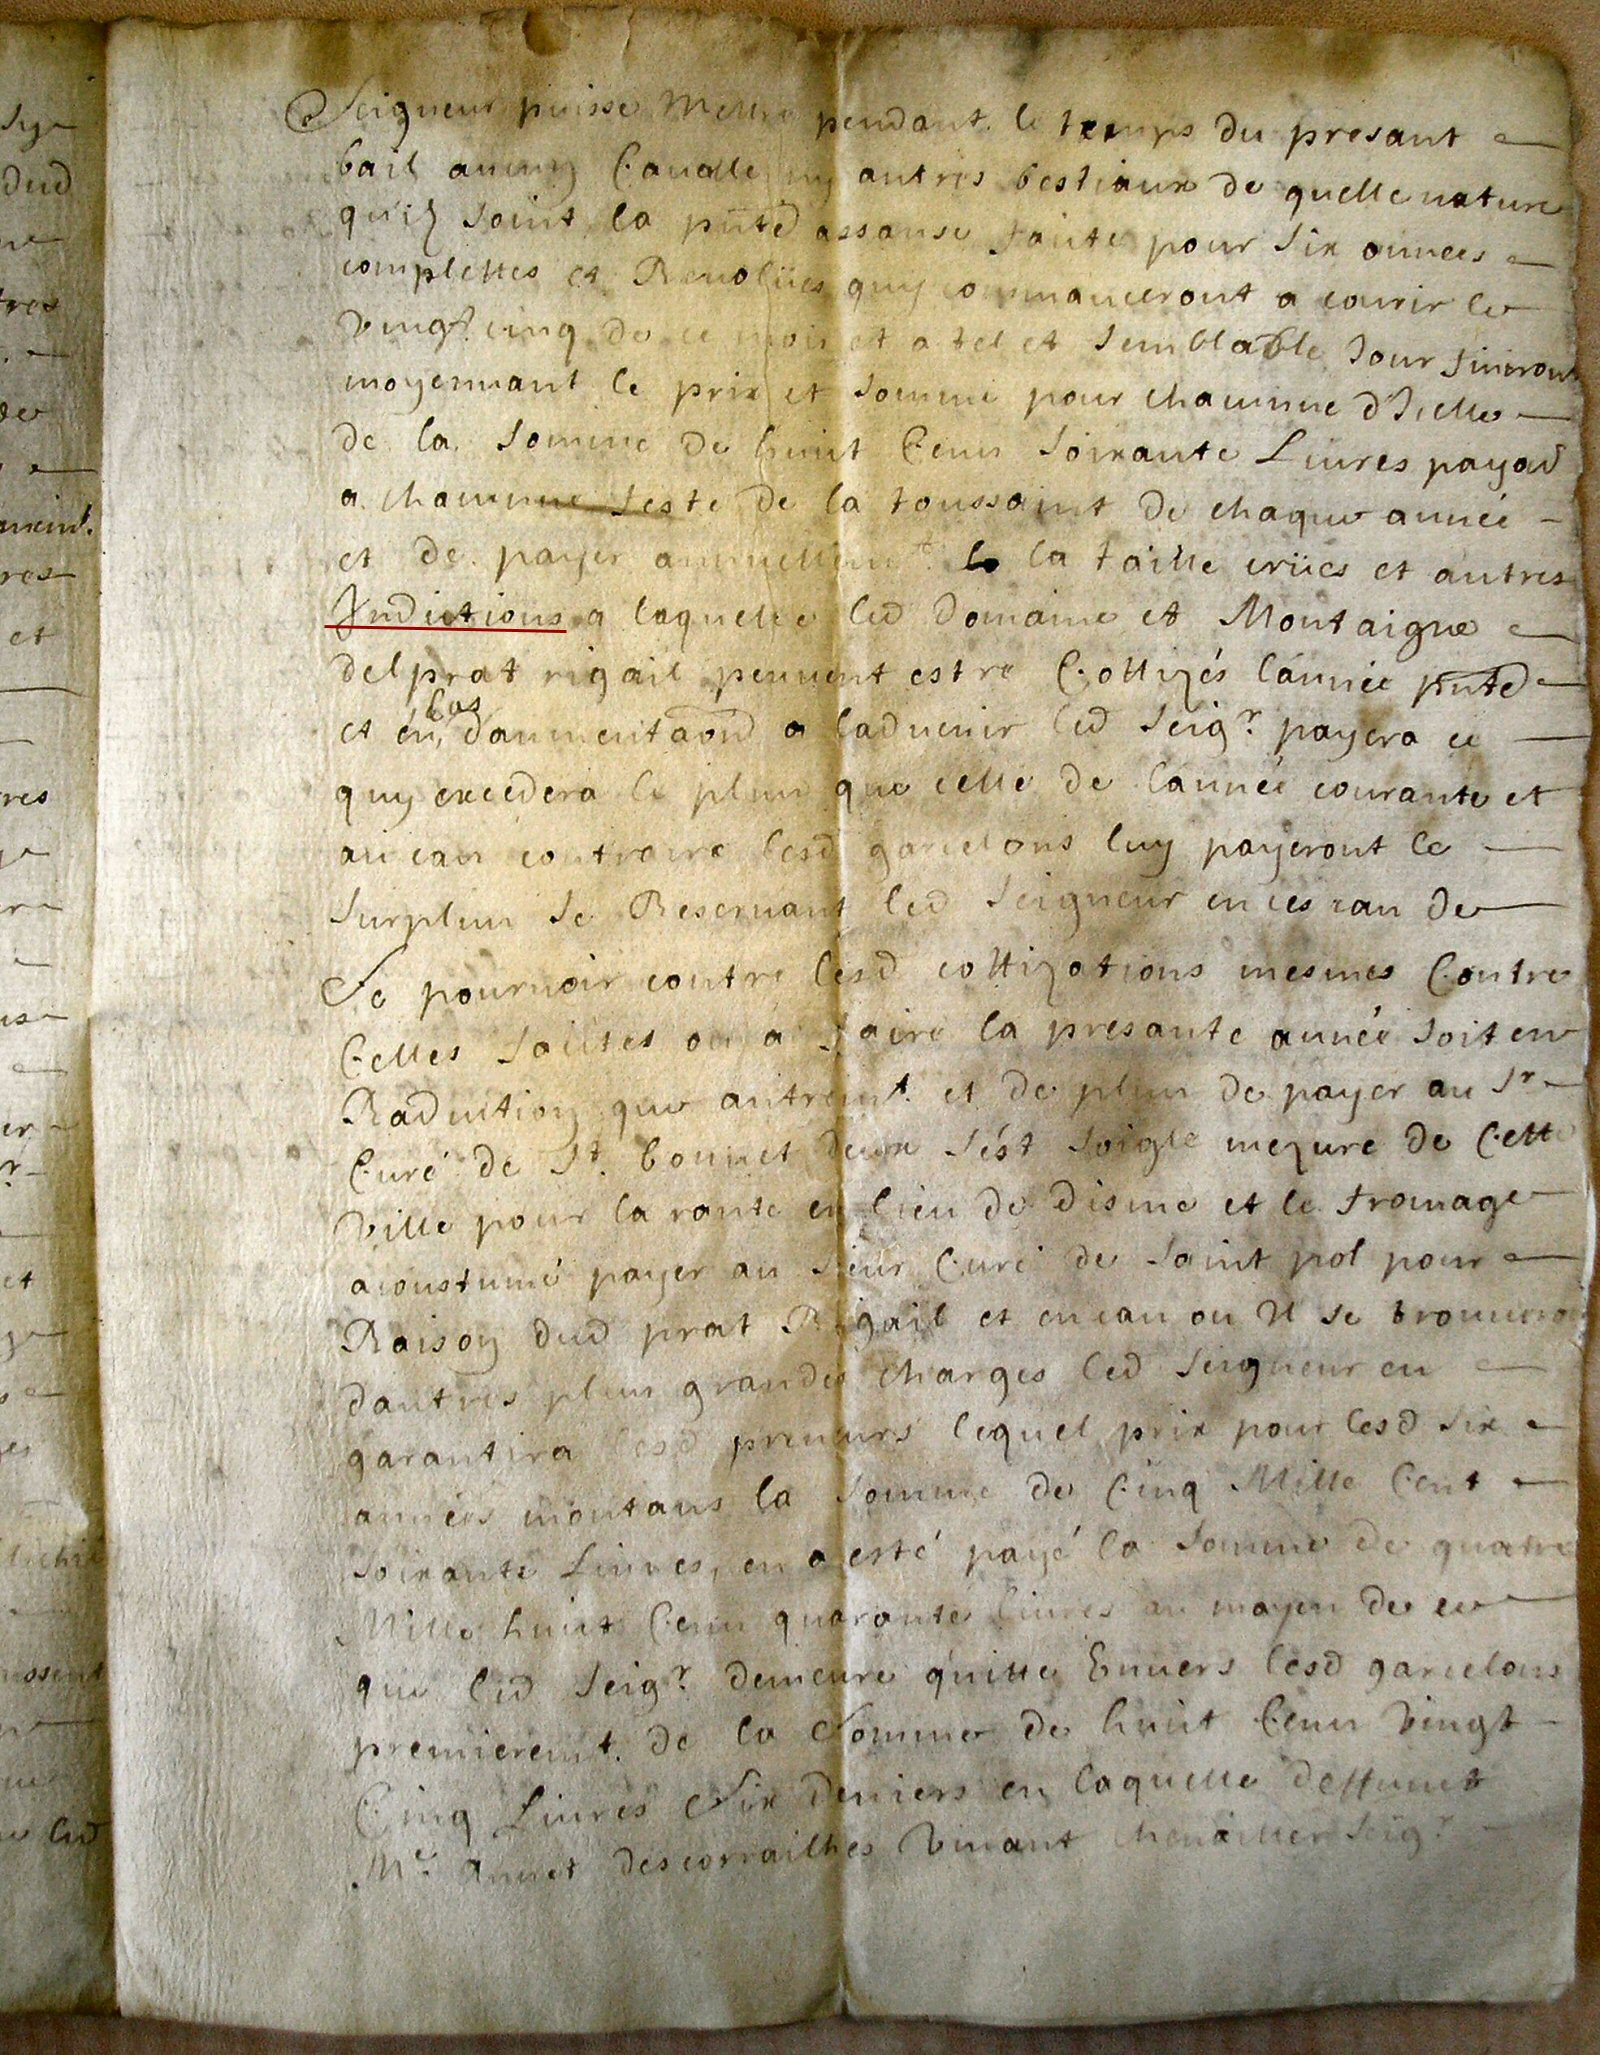 Seigneur puisse mettre pendant le temps du presant
bail aucun Cavalle ny autres bestiaux de quelle nature
qu'ilz soint la pnte assanse faite pour six annees
complettes et Revolües quy commanceront a courir le
vingt cinq de ce mois et a tel et semblable Jour finiront
moyennant le prix et somme pour chacunne d'Icelle
de la somme de huict Cens soixante Livres payad
a chacunne feste de la toussaint de chaque année
et de payer annuellemt. la taille crües et autres
Indictions a laquelle led domaine et Montaigne
delprat rigail peuvent estre Cottizés l'année pnte
et en cas daumentaond a ladvenir led seigr. payera ce
quy excedera le plus que celle de l'année courante et
au cas contraire lesd garcelons luy payeront le
surplus se Reservant led seigneur en ces cas de
se pourvoir contre lesd cottizations mesmes Contre
Celles faittes ou a faire la presante année soit en
Raduction que autremt. et de plus de payer au sr
Curé de st. bonnet deux sést soigle mezure de Cette
ville pour la rante en lieu de disme et le fromage
acoustumé payer au sieur Curé de saint pol pour
Raison dud prat Rigail et en cas ou Il se trouveroit
dautres plus grandes charges led seigneur en
garantira lesd preneurs lequel prix pour lesd six
années montans la somme de Cinq Mille Cent
soixante Livres, en a esté payé la somme de quatre
Mille huict Cens quarante livres au moyen de ce
que led seigr. demeure quitte Envers lesd garcelons
premieremt. de la somme de huict Cens vingt
Cinq Livres Six deniers en laquelle deffunct
Me. annet descorrailhes vivant chevallier seigr.